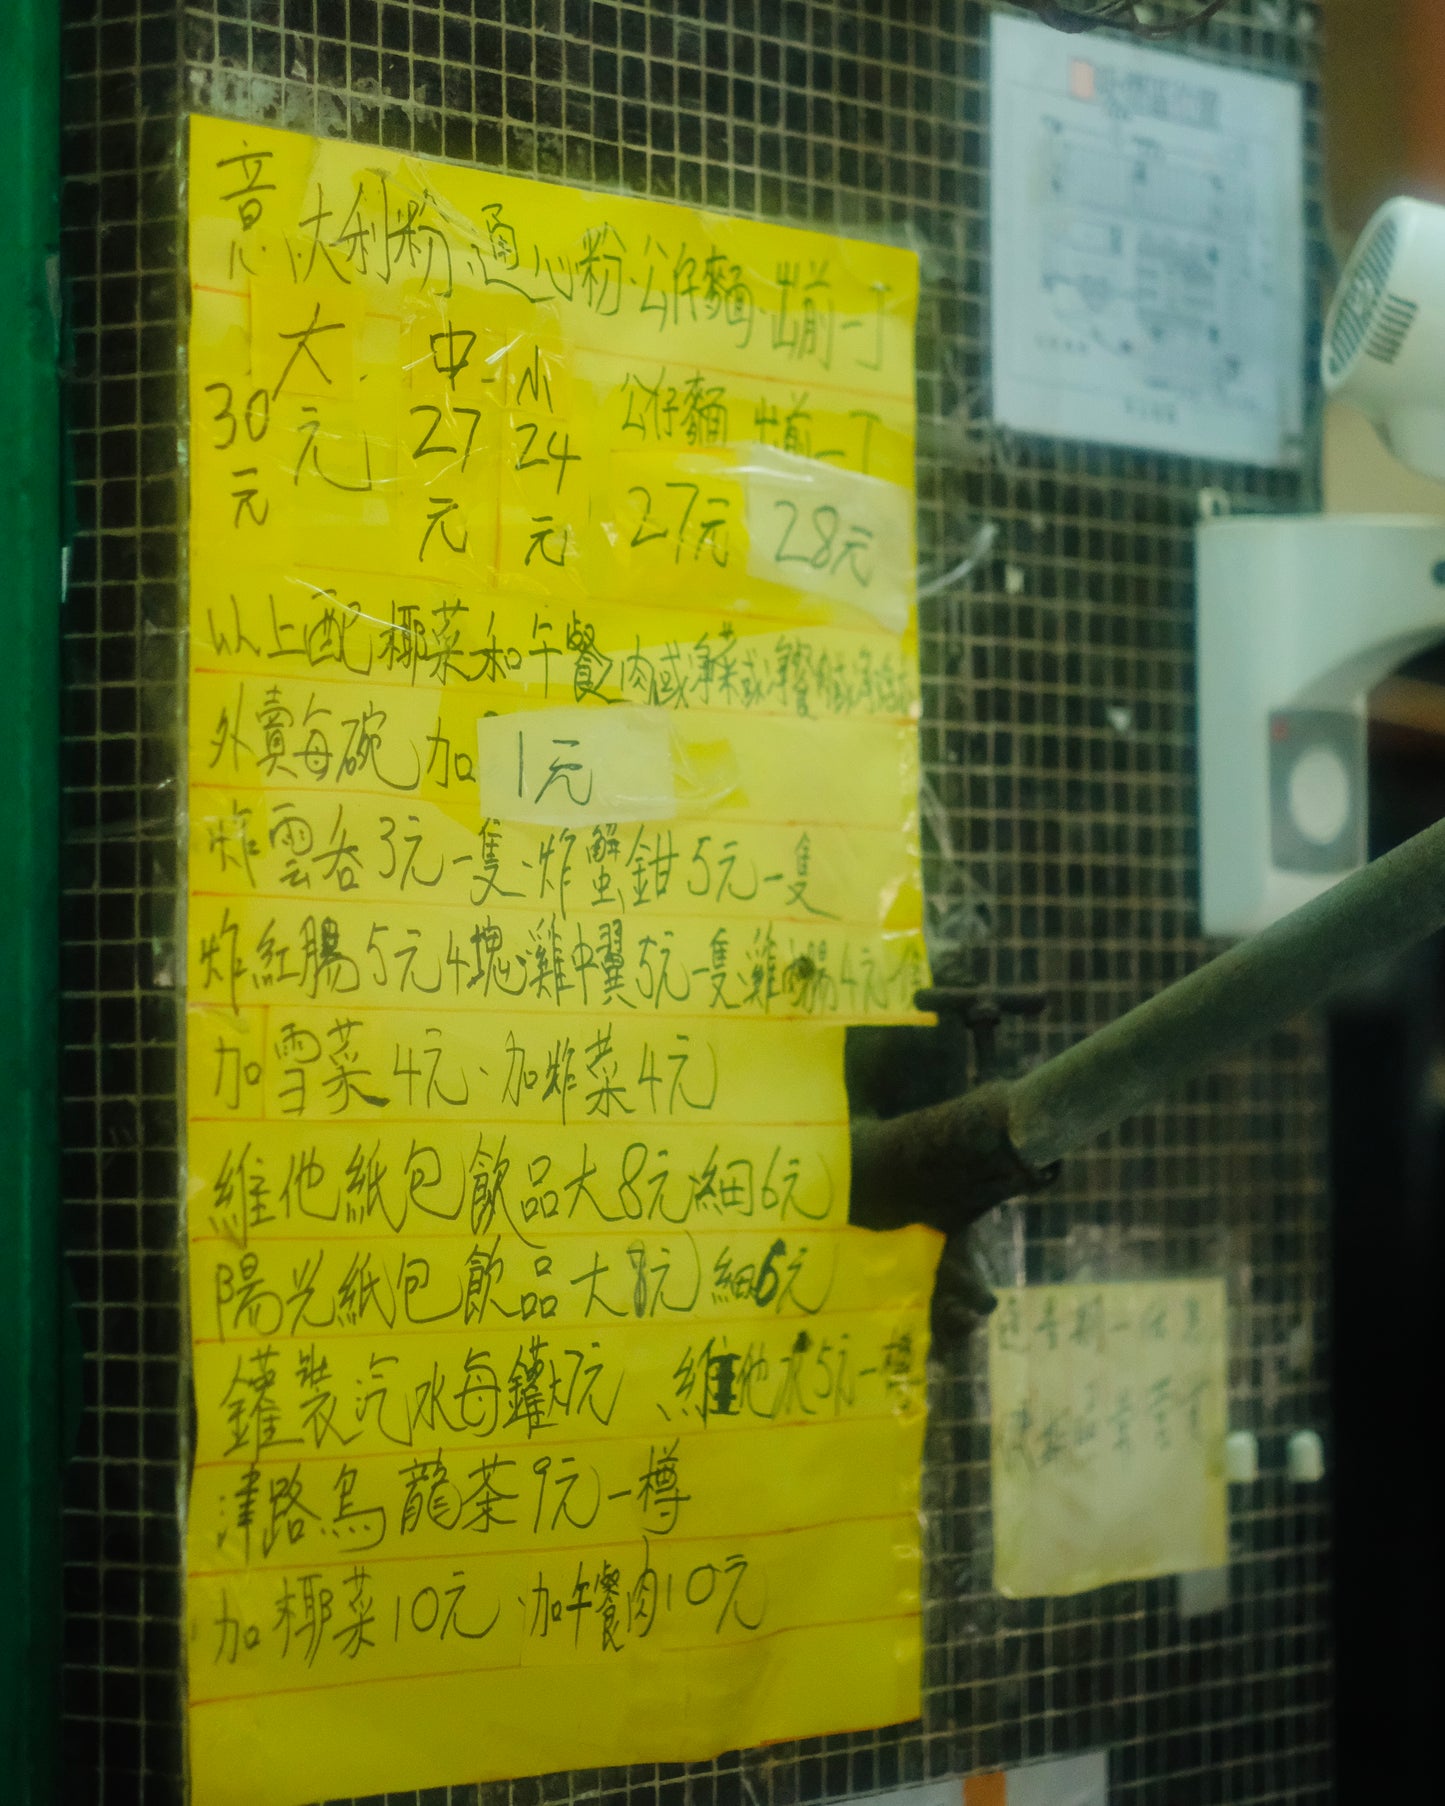 意大利粉.通心粉.公仔麵.出前一丁
大.中.小 公仔麵 出前一丁
30元 元 27元 24元 27元 28元
以上配椰菜和午餐肉或淨菜或淨餐肉或
外賣每碗加1元
炸雲吞3元一隻.炸蟹鉗5元一隻
炸紅腸5元4塊.雞中翼5元一隻.雞肉腸4元一隻
加雪菜4元.加炸菜4元
維他紙包飲品大8元細6元
陽光紙包飲品大8元細6元
鑵裝汽水每鑵7元 維他水5元一樽
津路烏龍茶9元一樽
加椰菜10元.加午餐肉10元